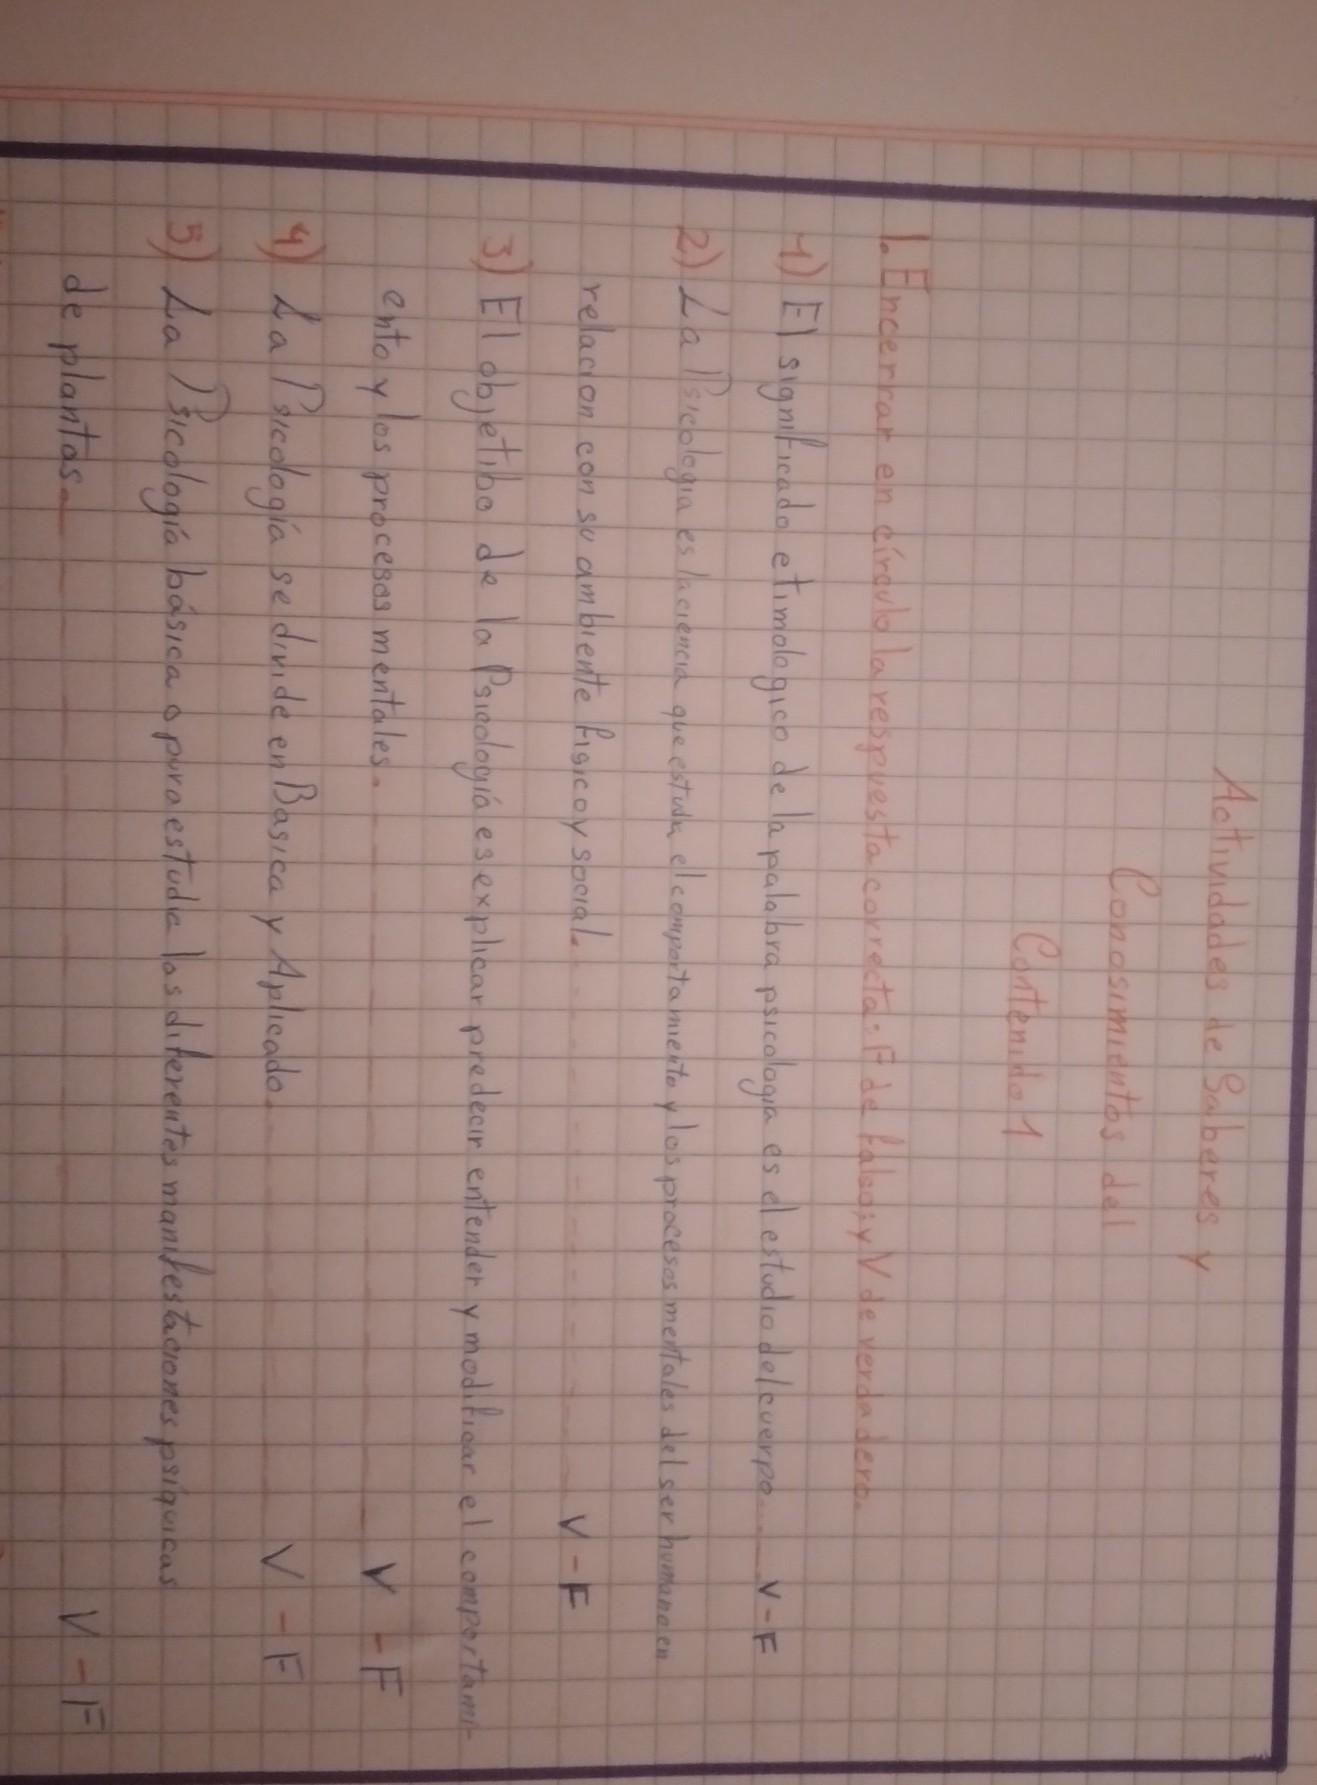 Actividades de Saberes y
Conosimientos del
Contenido 1
1. Encerrar en círculo la respuesta correcta: F de falso; y V de verdadero.
1) El significado etimologico de la palabra psicologia es el estudio del cuerpo.... V - F
2) La Psicologia es la ciencia que estudia el comportamiento y los procesos mentales del ser humano en
relacion con su ambiente fisico y social. - - - - - - - - - - V - F
3) El objetibo de la Psicología es explicar predecir entender y modificar el comportami-
ento y los procesos mentales. V - F
4) La Psicología se divide en Basica y Aplicado. V - F
5) La Psicología básica o pura estudia las diferentes manifestaciones psiquicas
de plantas. V - F